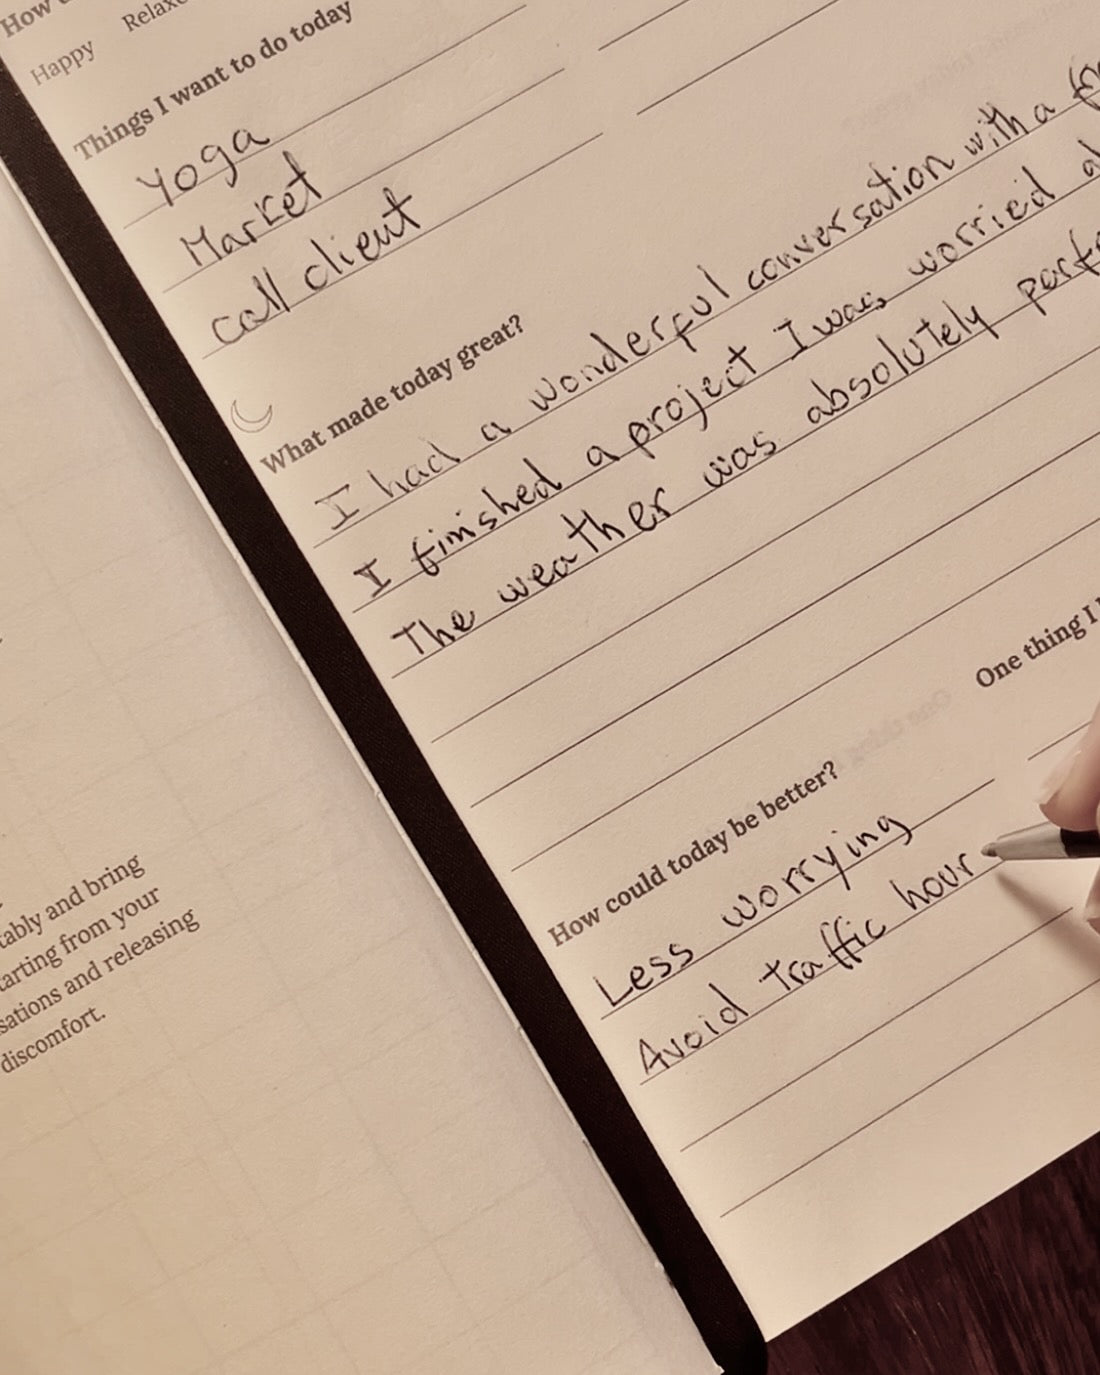 How
Happy
Things I want to do today
Yoga
Market
call client
What made today great?
I had a wonderful conversation with a
I finished a project I was worried
The weather was absolutely
One thing I
How could today be better?
Less worrying
Avoid traffic hour
and bring
from your
and releasing
discomfort.